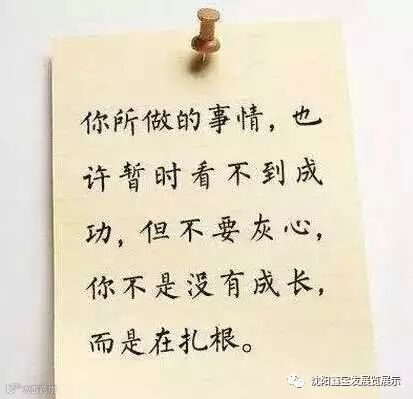 你所做的事情，也
许暂时看不到成
功，但不要灰心，
你不是没有成长，
而是在扎根。
沈阳鑫宝发展览展示